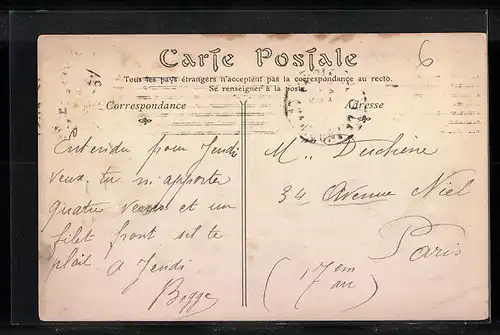 6
Carte Postale
Tous les pays étrangers n'acceptent pas la correspondance au recto.
Se renseigner à la poste
Correspondance
Adresse
Entendu pour Jeudi
veux tu m'apporter
quatre et un
filet s'il te
plait. A Jeudi
M Duchêne
34 Avenue Niel
Paris
(17em
arr)